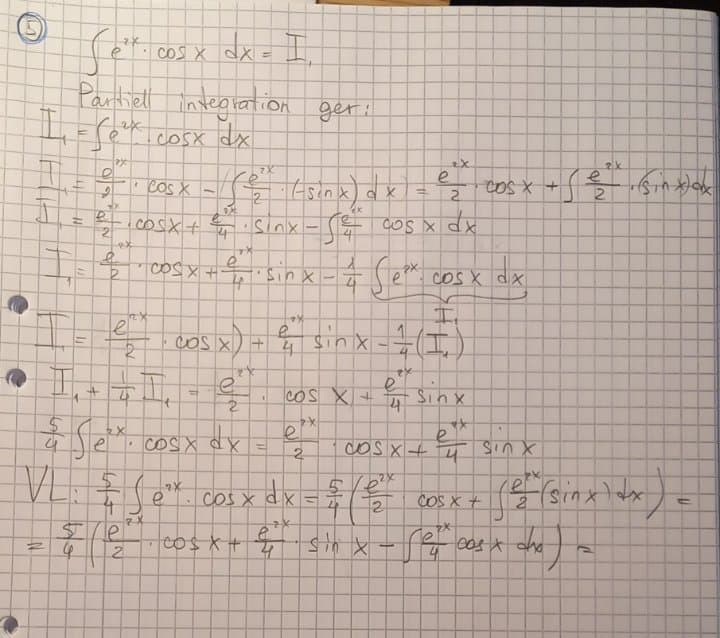 5
∫e^2x · cos x dx = I₁
Partiell integration ger:
I₁ = ∫e^2x · cosx dx
I₁ = e^2x/2 · cosx - (∫e^2x/2 · (-sinx) dx) = e^2x/2 · cos x + ∫e^2x/2 · (sinx)dx
I₁ = e^2x/2 · cosx + e^2x/4 · sinx - ∫e^2x/4 cos x dx
I₁ = e^2x/2 · cosx + e^2x/4 · sinx - 1/4 ∫e^2x · cosx dx
I₁
I₁ = e^2x/2 · cosx) + e^2x/4 sinx - 1/4 (I₁)
I₁ + 1/4 I₁ = e^2x/2 · cos x + e^2x/4 sinx
5/4 ∫e^2x · cosx dx = e^2x/2 · cosx + e^2x/4 sinx
VL: 5/4 ∫e^2x · cosx dx = 5/4 (e^2x/2 · cosx + ∫e^2x/2 (sinx) dx) =
= 5/4 (e^2x/2 · cosx + e^2x/4 · sin x - ∫e^2x/4 cosx dx) =